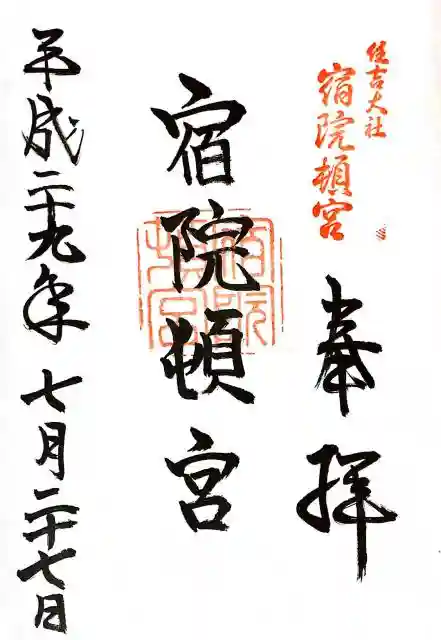 住吉大社
宿院頓宮
奉拝
宿院頓宮
宿院
頓宮
平成二十九年七月二十七日